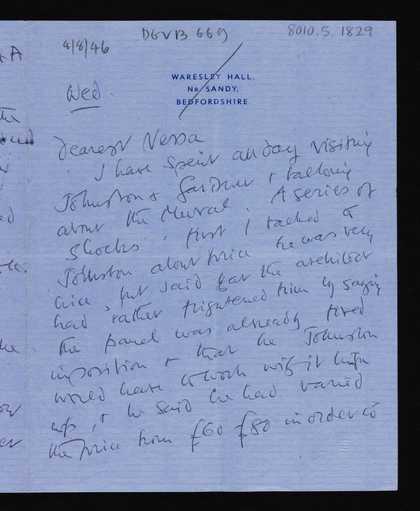 4/8/46
DGVB 669
8010.5.1829
WARESLEY HALL,
Nr SANDY,
BEDFORDSHIRE
Wed.
Dearest Nessa
I have spent all day visiting
Johnston & Gardner & talking
about the Mural. A series of
shocks. first I talked to
Johnston about price he was very
nice, but said that the architect
had rather frightened him by saying
the panel was already fixed
imposition & that he Johnston
would have to work with it
up, & he said he had varied
the price from £60 £80 in order to